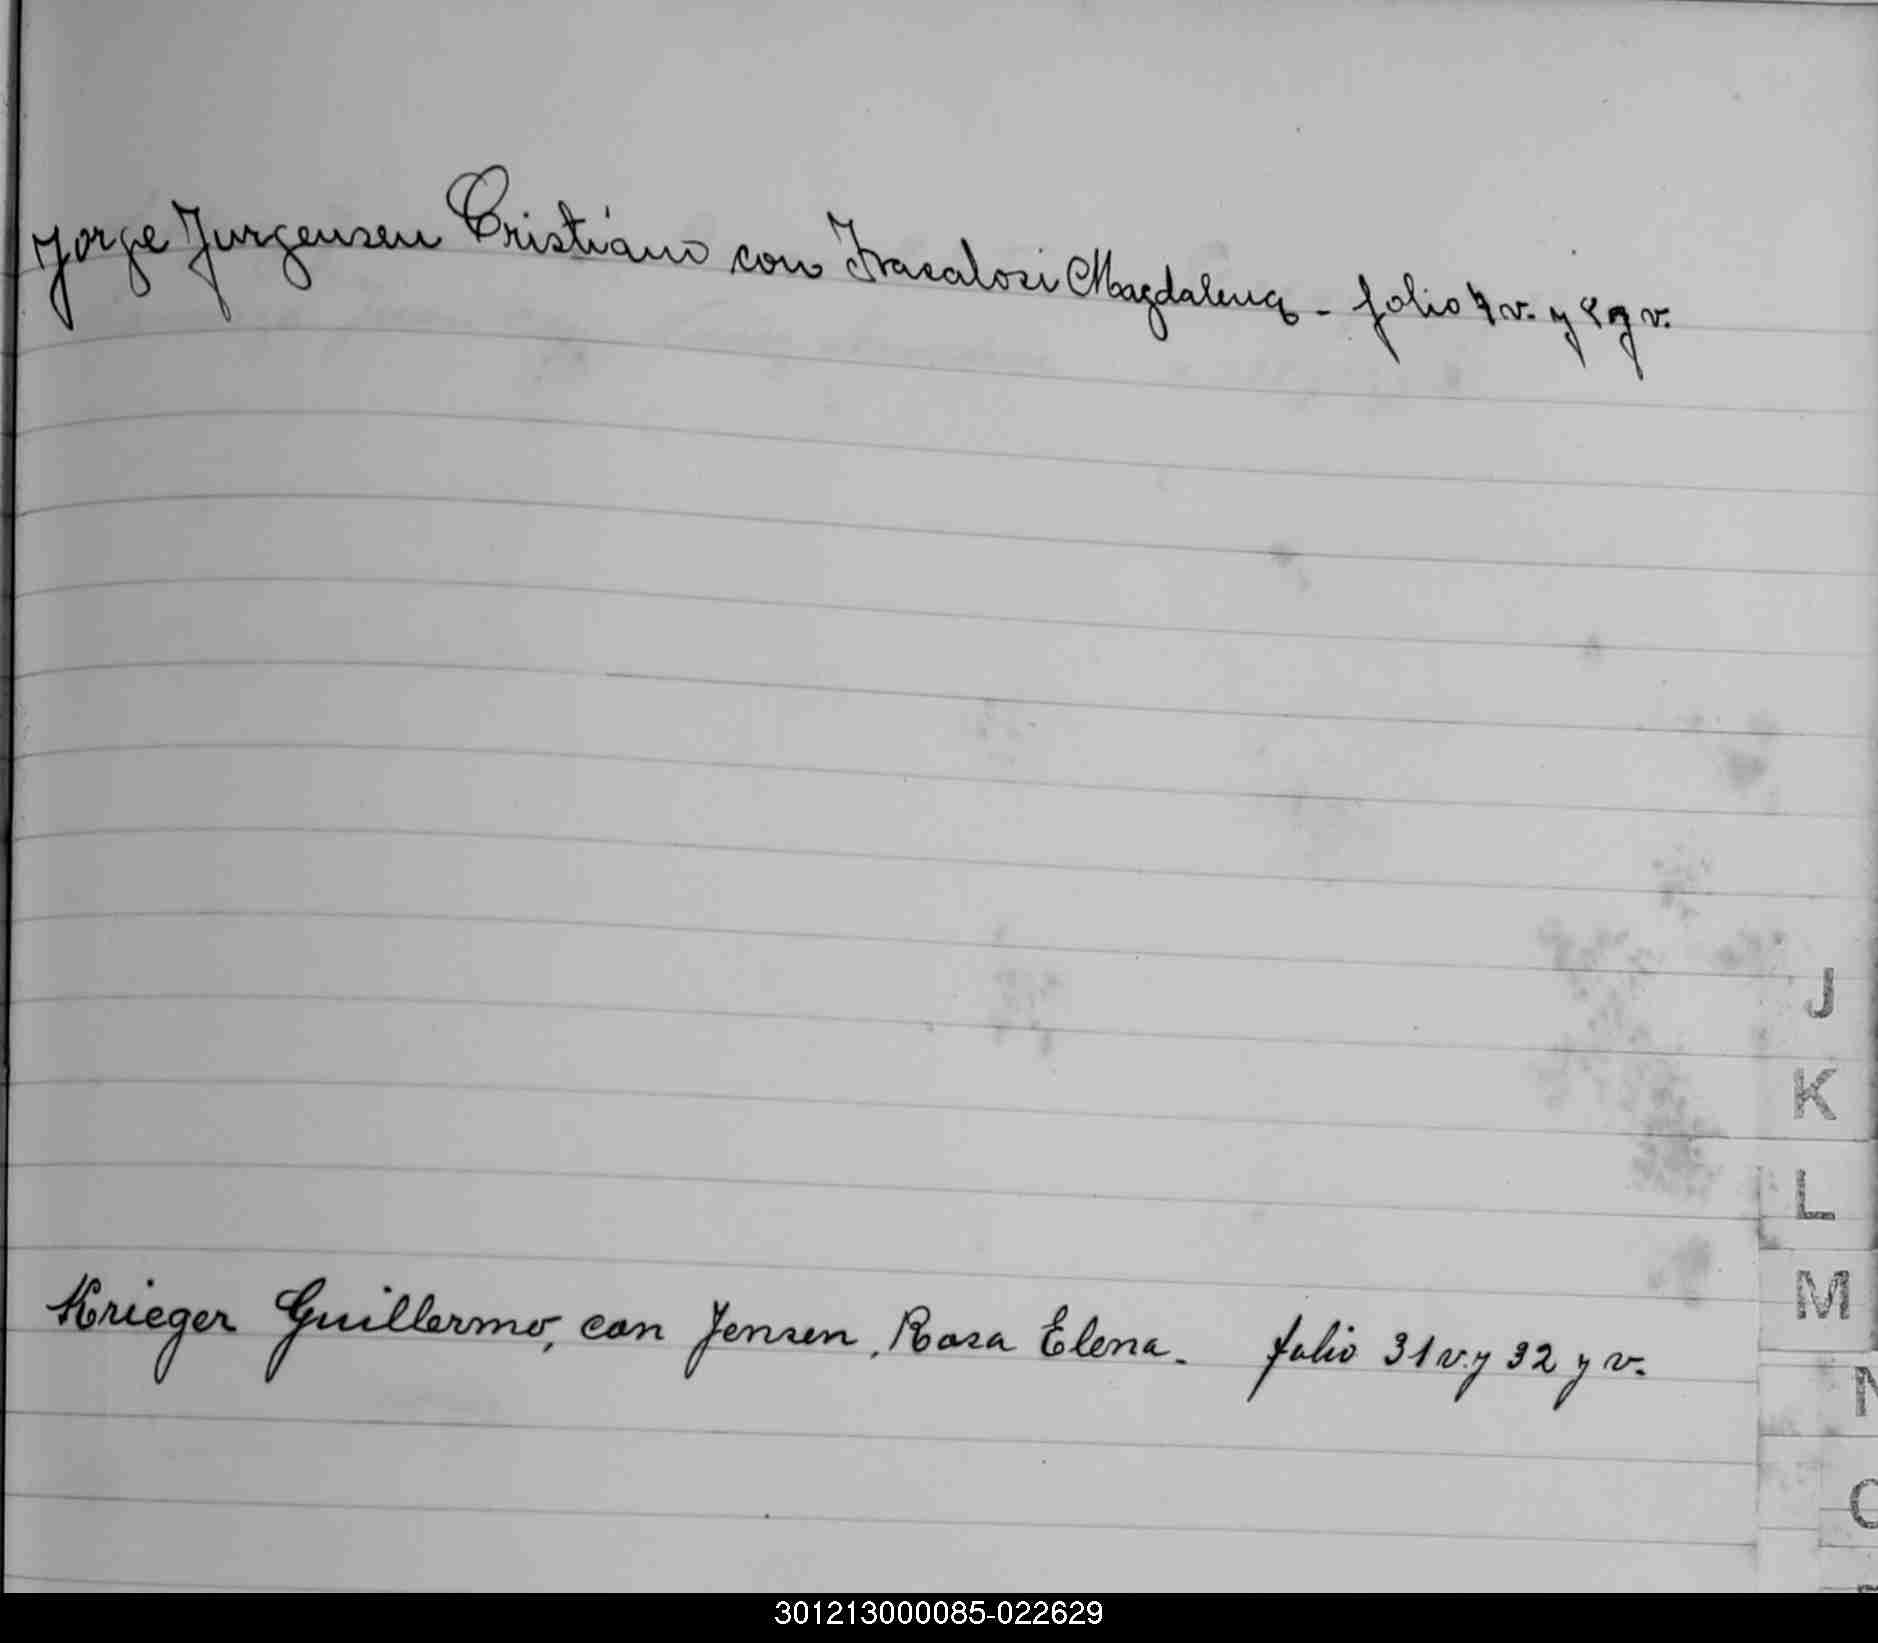 Jorge Jurgensen Cristiano con Magdalena - folio v. y v.
J
K
L
M
Krieger Guillermo, con Jensen, Rosa Elena. folio 31 v. y 32 y v.
N
O
301213000085-022629